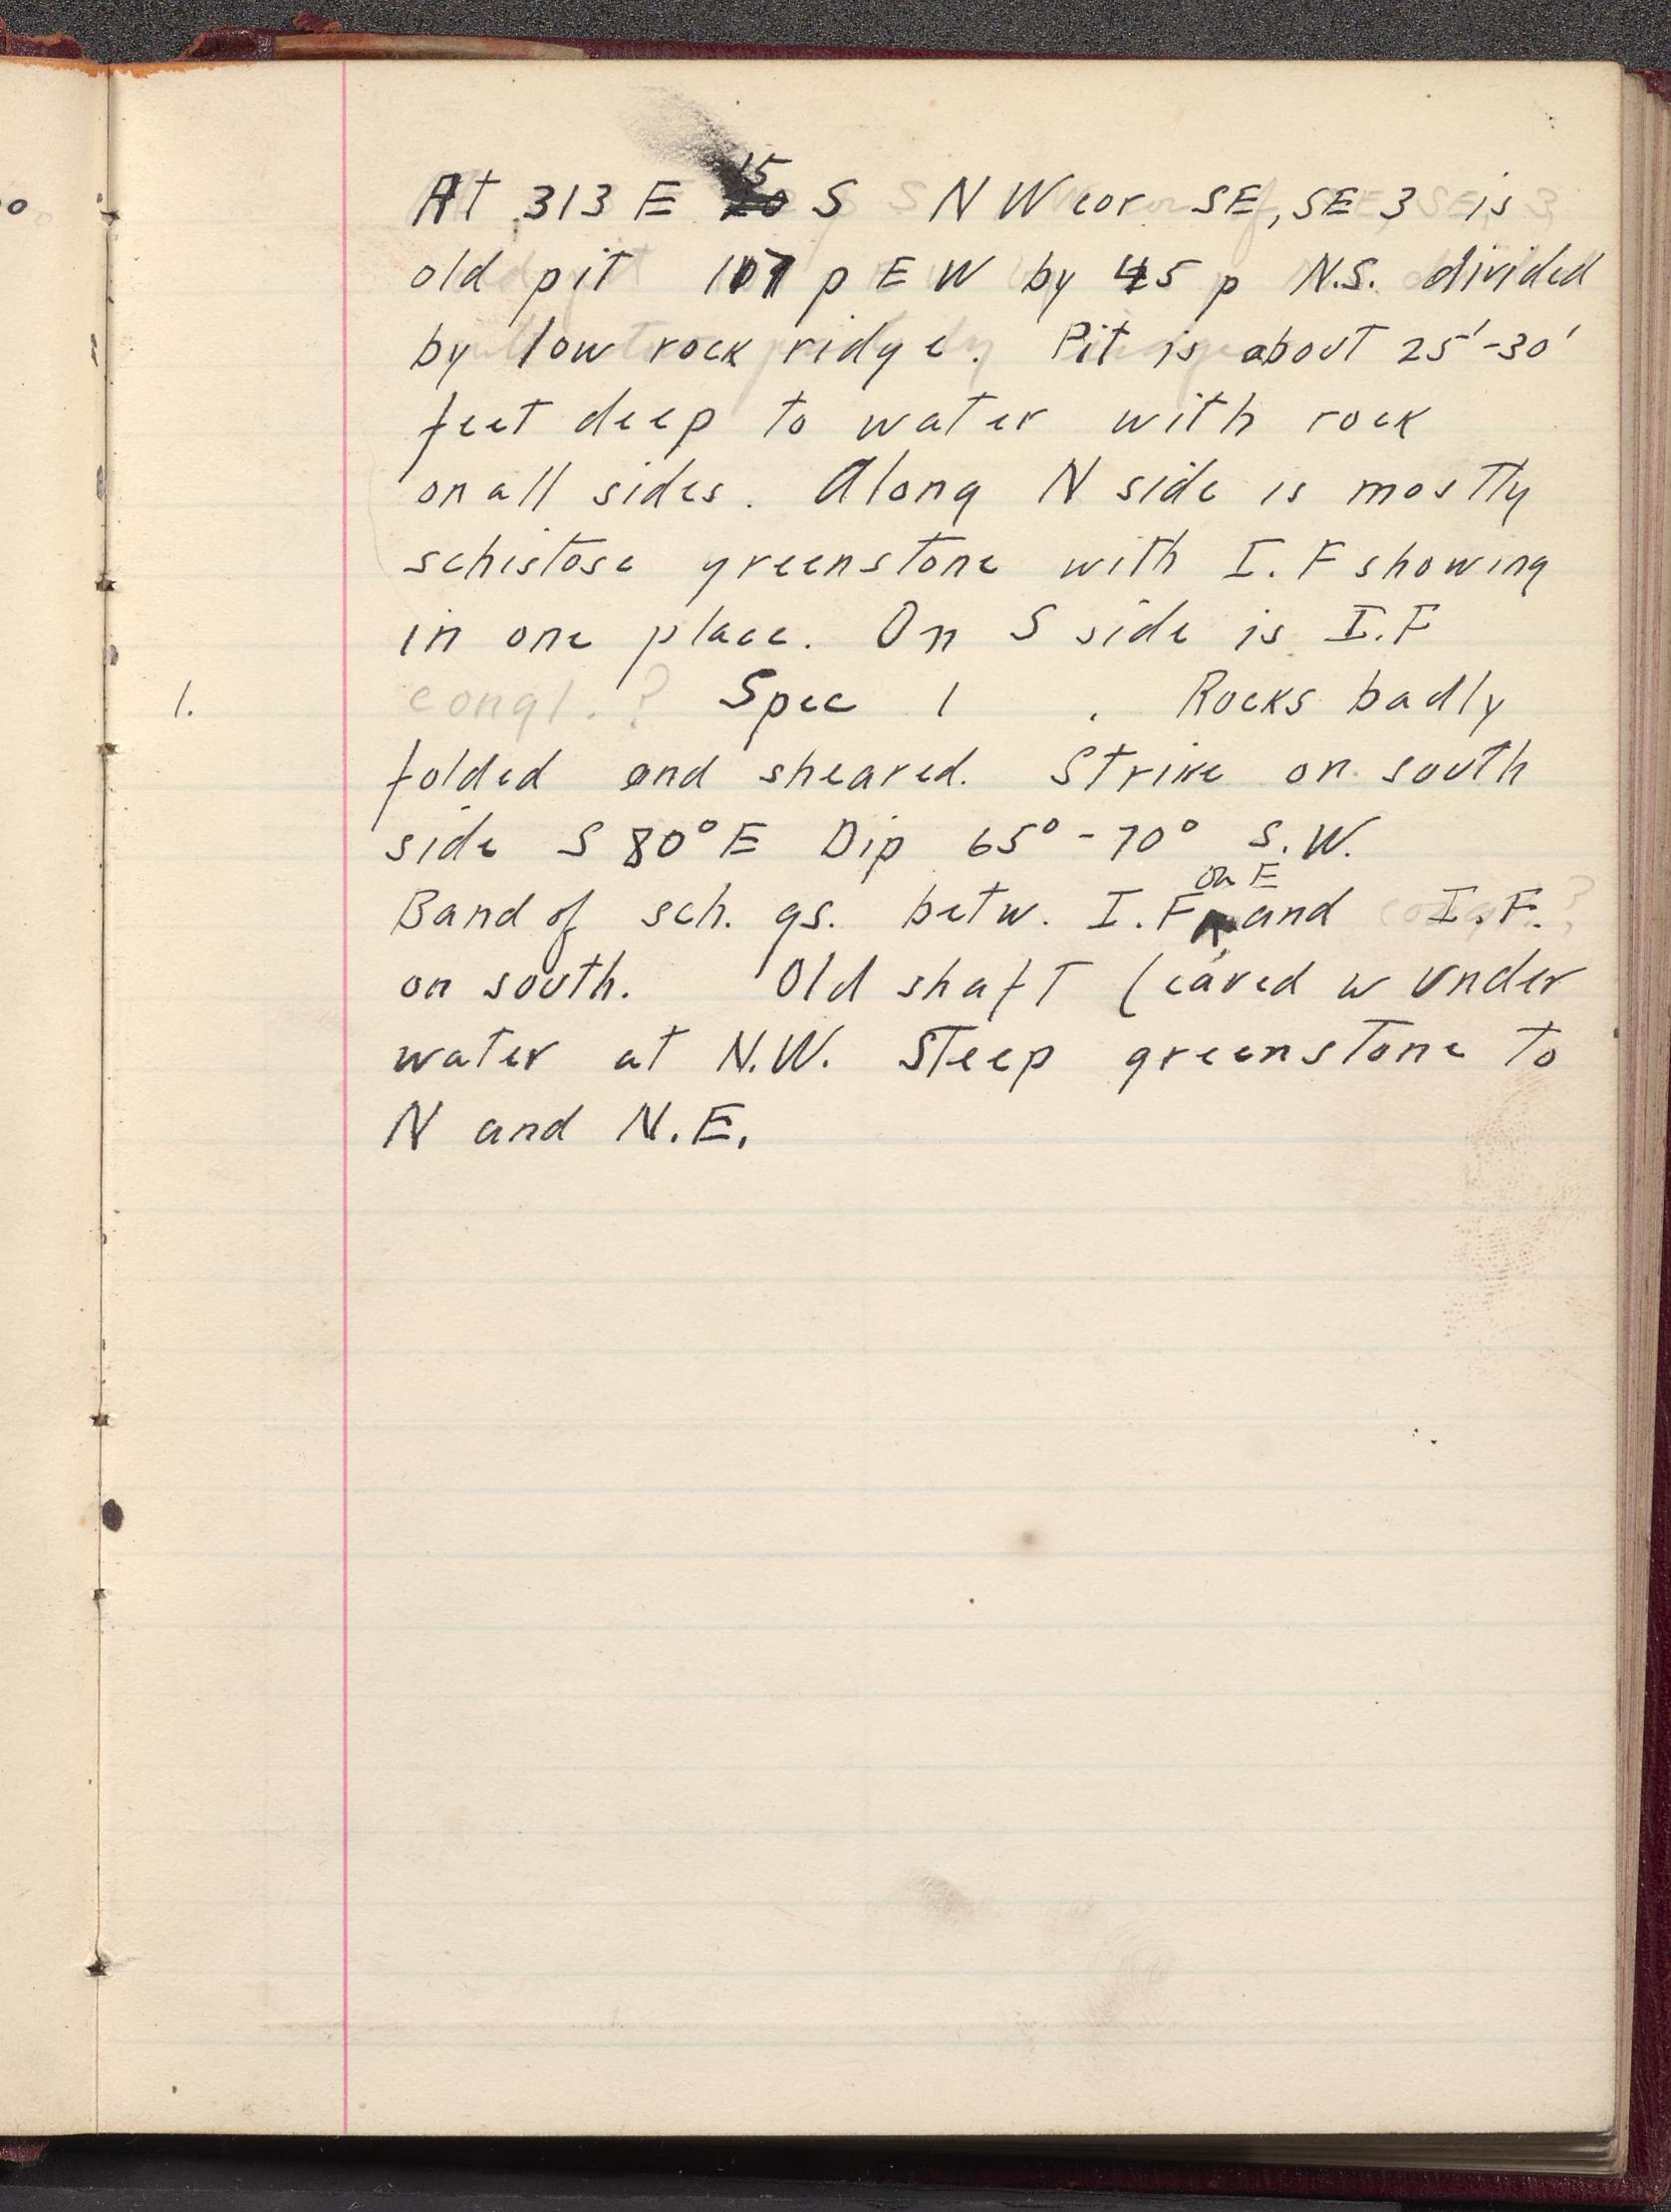 At 313 E 15 S NW cor SE, SE 3 is
old pit 107 p E W by 45 p N.S. divided
by low rock ridge. Pit is about 25'-30'
feet deep to water with rock
on all sides. Along N side is mostly
schistose greenstone with I.F showing
in one place. On S side is I.F
1. congl. ? Spec 1 . Rocks badly
folded and sheared. Strike on south
side S 80° E Dip 65° - 70° S.W.
on E
Band of sch. gs. betw. I.F. and I.F.
on south. Old shaft (caved w under
water at N.W. Steep greenstone to
N and N.E.